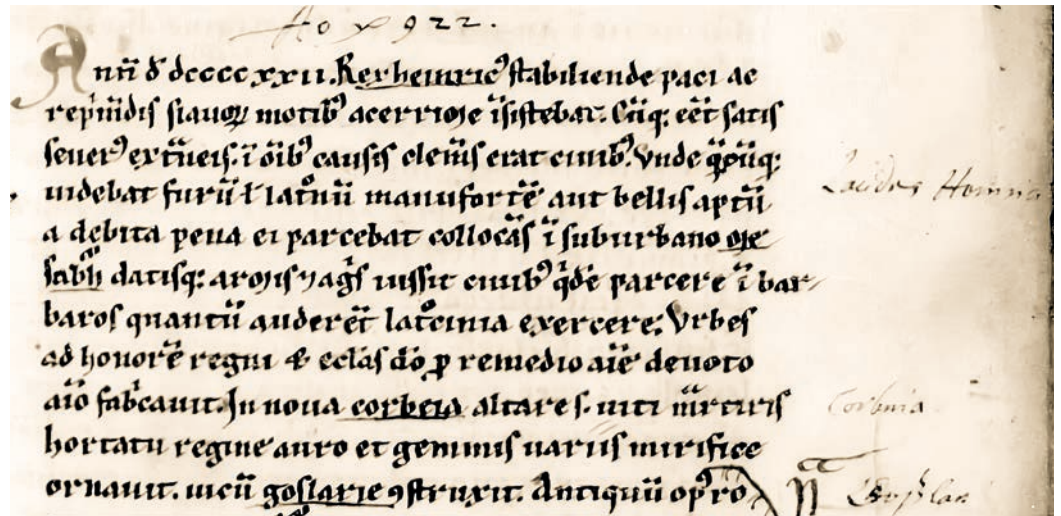 Ao 922.
Anñ d̃ dccccxxii. Rex heinric⁹ stabiliende paci ac
rep̃m̃dis slauoꝝ motib⁹ acerrime ĩsistebat. Cũq; eẽt satis
seuer⁹ ext̃neis. ĩ oĩb⁹ causis clem̃s erat ciuib⁹. Vnde q̃ncũq;
uidebat furũ ł lat͛nũ manufortẽ aut bellis aptũ
a debita pena ei parcebat collocãs ĩ suburbano me
sabħ datisq; armis ⁊ ag̃s iussit ciuib⁹ q̃dẽ parcere ĩ bar
baros quantũ auderẽt lat͛cinia exercere. Vrbes
ad honorẽ regni & ecl̃as dõ ꝓ remedio aĩe deuoto
aĩo fab̃cauit. In noua corbeia altare s. uiti m̃rtiris
hortatu regine auro et gemmis uariis mirifice
ornauit. uicũ goslarie ꝯstruxit. Antiquũ op̃ ro
Laudes
Corbeia